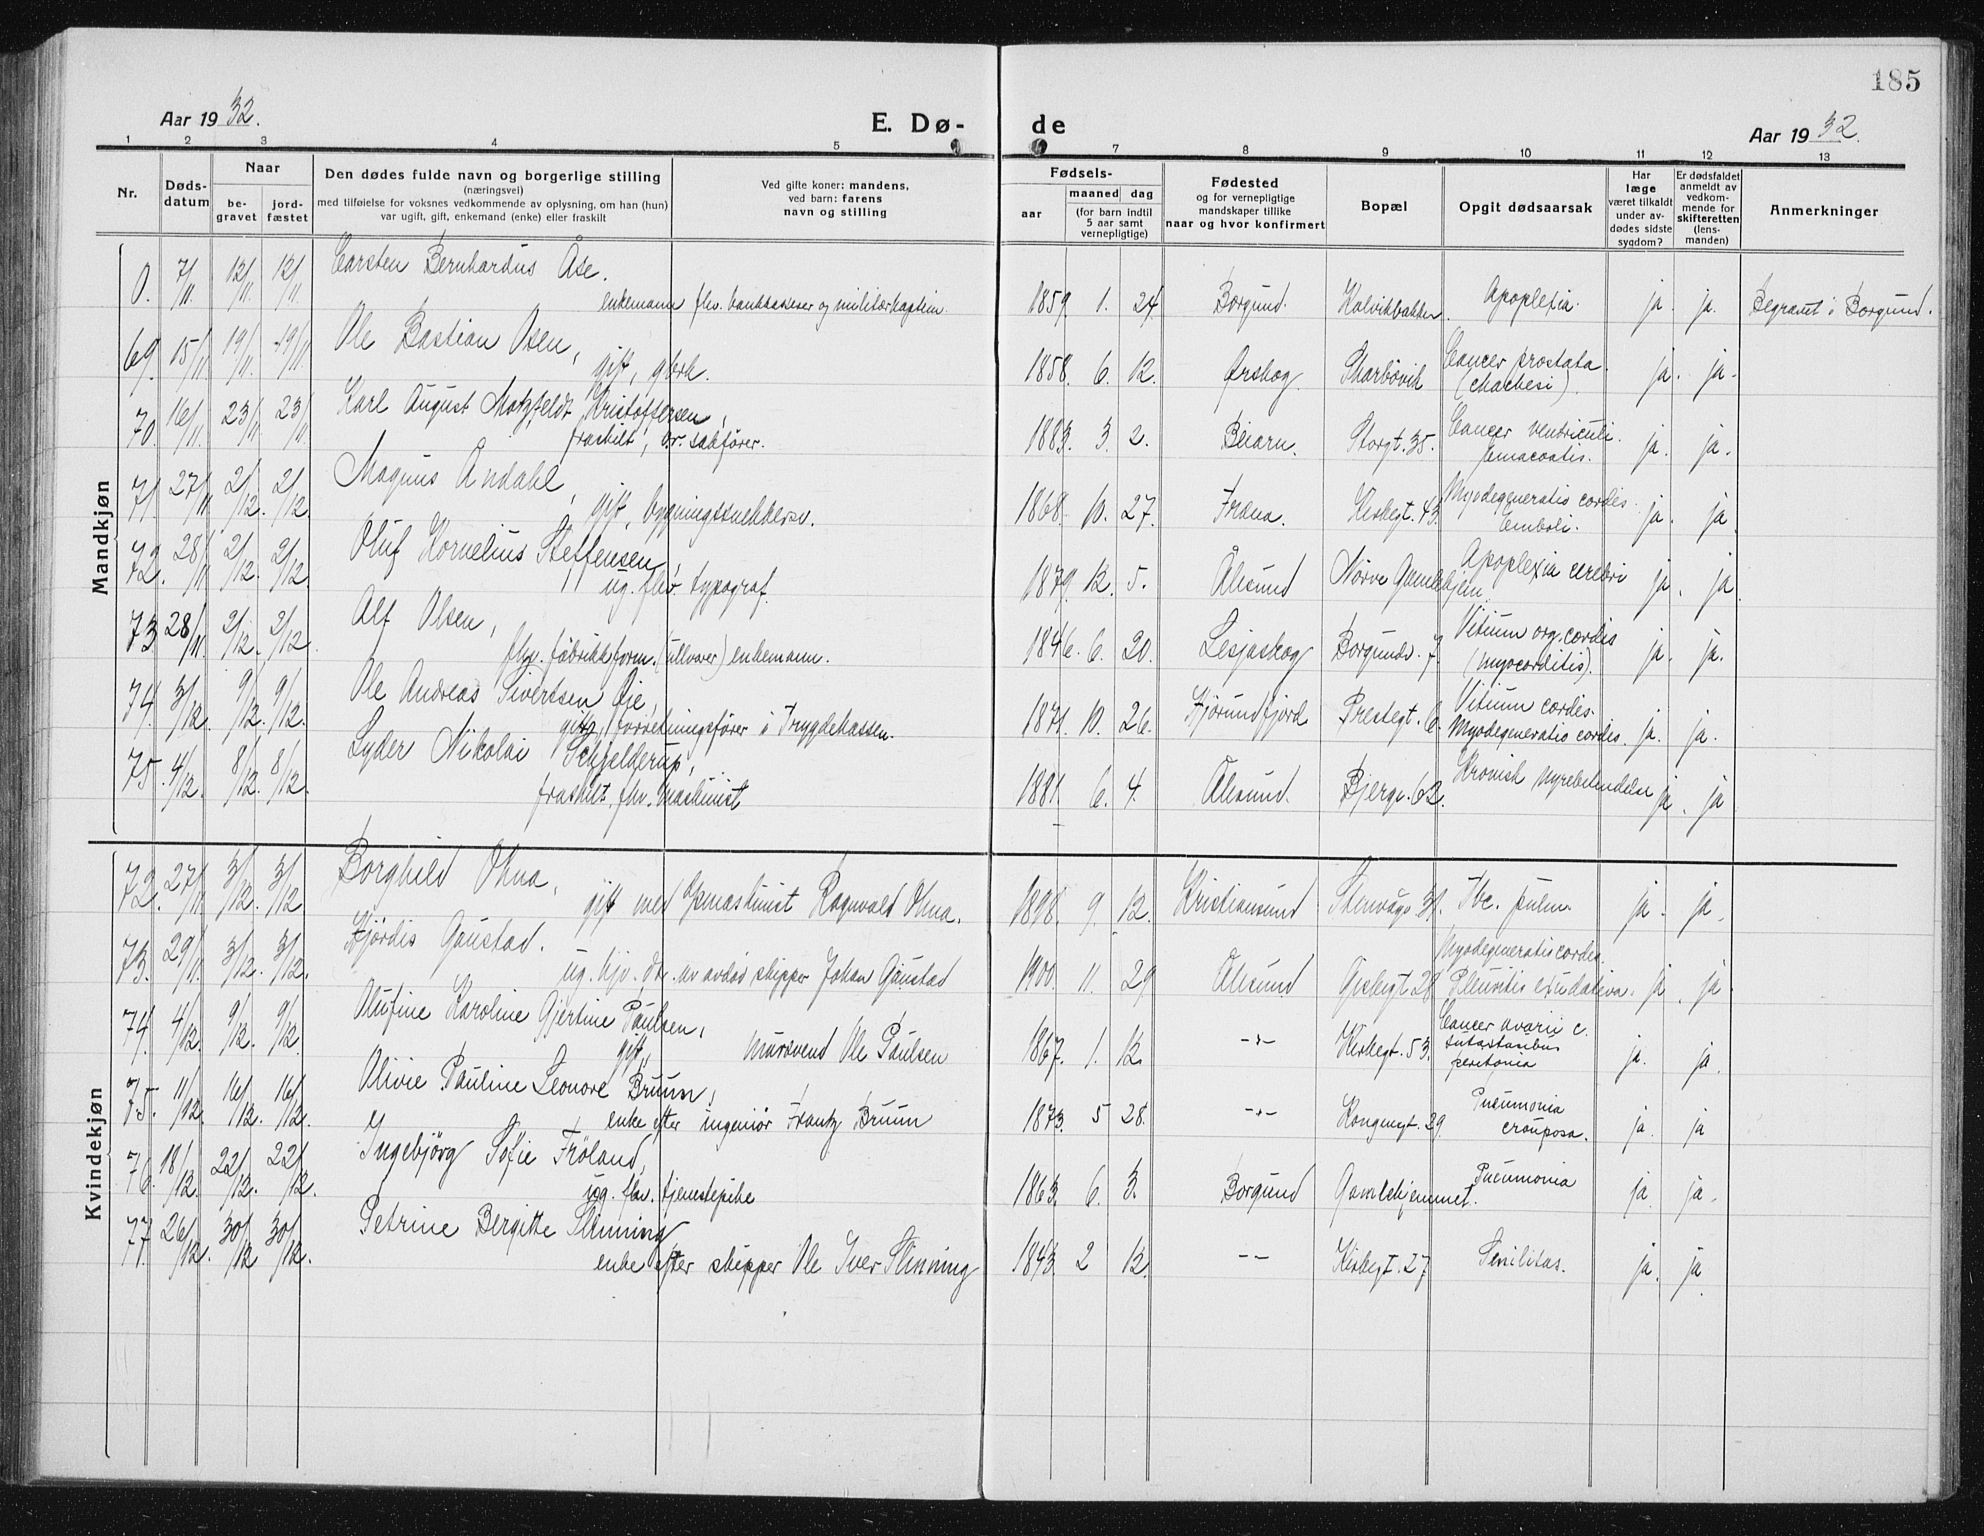 185
Aar 1932.
E. Dø-
de
Aar 1932.
1 2 3 4 5 7 8 9 10 11 12 13
Nr.
Døds-
datum
Naar
be-
gravet
jord-
fæstet
Den dødes fulde navn og borgerlige stilling
(næringsvei)
med tilføielse for voksnes vedkommende av oplysning, om han (hun)
var ugift, gift, enkemand (enke) eller fraskilt
Ved gifte koner: mandens,
ved barn: farens
navn og stilling
Fødsels-
aar
maaned
dag
(for barn indtil
5 aar samt
vernepligtige)
Fødested
og for vernepligtige
mandskaper tillike
naar og hvor konfirmert
Bopæl
Opgit dødsaarsak
Har
læge
været tilkaldt
under av-
dødes sidste
sygdom?
Er dødsfaldet
anmeldt av
vedkom-
mende for
skifteretten
(lens-
manden)
Anmerkninger
Mandkjøn
0. 7/11. 12/11 12/11. Carsten Bernhardus Åse.
enkemann flv. bankkasserer og militærkaptein. 1859. 1. 24 Borgund. Kolvikbakken. Apoplexia. ja. ja. Begravet i Borgund.
69. 15/11 19/11. 19/11 Ole Bastian Osen,
gift, gbrk. 1858. 6. 12. Ørskog Skarbøvik Cancer prostata.
(chachexi). ja. ja.
70. 16/11. 23/11 23/11. Karl August Motzfeldt Kristoffersen,
fraskilt, or. sakfører. 1883. 3. 2. Beiarn. Storgt. 35. Cancer ventriculi.
ja. ja.
71. 27/11 2/12. 2/12. Magnus Åndahl,
gift, bygningssnekkersv. 1868. 10. 27. Fræna. Kirkegt. 43. Myodegeneratio cordis.
Emboli. ja. ja.
72. 28/11 2/12. 2/12. Oluf Kornelius Steffensen,
ug. flv. typograf. 1879. 12. 5. Ålesund Nørve Gamlehjem. Apoplexia cerebri ja. ja.
73 28/11. 2/12. 2/12. Alf Olsen,
flv. fabrikkform. (ullvarer) enkemann. 1846. 6. 20. Lesjaskog Borgundv. 7. Vitium org. cordis
(myocorditis). ja. ja.
74. 3/12. 9/12. 9/12. Ole Andreas Sivertsen Øie,
gift, forretningsfører i Trygdekassen. 1871. 10. 26. Hjørundfjord Prestegt. 6. Vitium cordis.
Myodegeneratio cordis. ja. ja.
75. 4/12. 8/12. 8/12. Lyder Nikolai Schjelderup,
fraskilt, flv. maskinist 1881. 6. 4. Ålesund. Bjergv. 62. Kronisk nyrebetendelse ja. ja
Kvindekjøn
72. 27/11 3/12. 3/12 Borghild Ohna,
gift med Ragnvald Ohna. 1898. 9. 12. Kristiansund Stenvåg. 31. Tbc. pulm. ja. ja.
73. 29/11. 3/12. 3/12. Hjördis Gaustad.
ug. hjv. dtr. av avdød skipper Johan Gaustad 1900. 11. 29 Ålesund 28 Myodegeneratio cordis.
Pleuritis exudativa. ja. ja.
74. 4/12 9/12. 9/12. Olufine Karoline Gjertine Paulsen,
gift, mursvend Ole Paulsen 1867. 1. 12. -"- Kirkegt. 53. Cancer ovarii c.
peritonia ja. ja.
75. 11/12. 16/12. 16/12. Olivie Pauline Leonore Bruun,
enke efter ingeniør Frantz Bruun 1873. 5 28. -"- Kongensgt. 29. Pneumonia
crouposa. ja. ja
76. 18/12. 22/12. 22/12. Ingebjörg Sofie Fröland,
ug. flv. tjenestepike 1863. 6. 3. Borgund Gamlehjemmet. Pneumonia ja ja.
77. 26/12. 30/12 30/12. Petrine Bergitte Slinning
enke efter skipper Ole Iver Slinning 1843. 2 12. -"- Kirkegt. 27. Senilitas. ja. ja